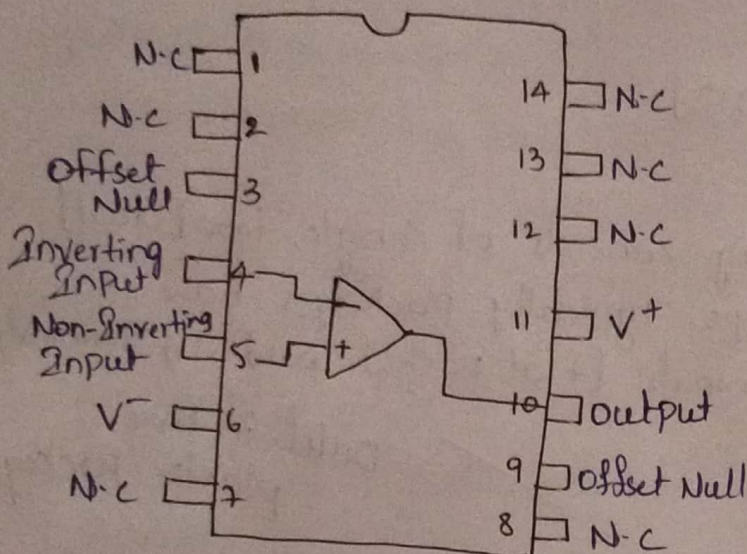 N-C 1
N-C 2
Offset
Null 3
Inverting
Input 4
Non-Inverting
Input 5
V- 6
N-C 7
-
+
14 N-C
13 N-C
12 N-C
11 V+
10 output
9 Offset Null
8 N-C